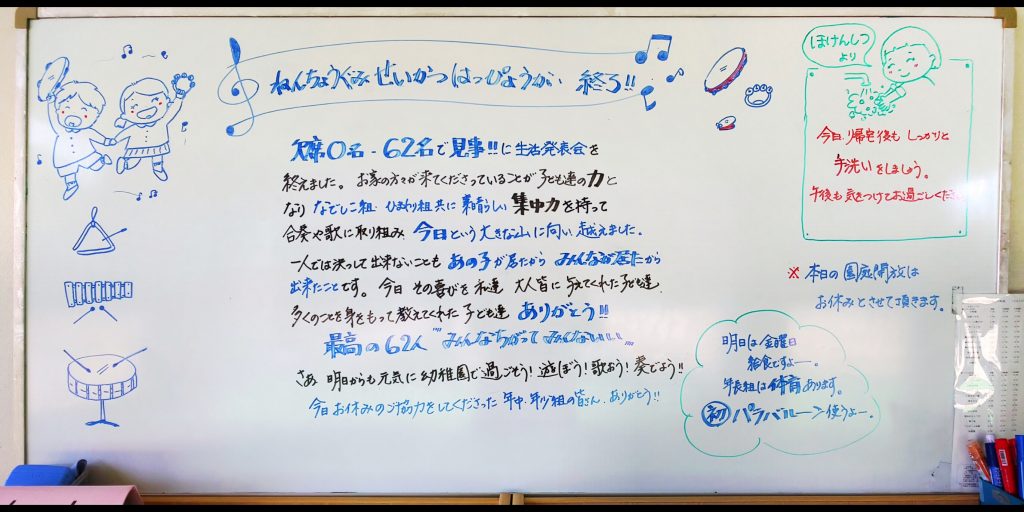 ねんちょうぐみ せいかつ はっぴょうかい 終了!!
欠席0名-62名で見事!!に生活発表会を
終えました。お家の方々が来てくださっていることが子ども達の力と
なり なでしこ組・ひまわり組共に素晴らしい集中力を持って
合奏や歌に取り組み、今日という大きな山に向い越えました。
一人では決して出来ないことも あの子が居たから みんなが居たから
出来たことです。今日 その喜びを 私達 大人皆に 与えてくれた子ども達
多くのことを身をもって教えてくれた 子ども達 ありがとう!!
最高の62人 "みんなちがって みんないい"
さあ 明日からも元気に幼稚園で過ごそう!遊ぼう!歌おう!奏でよう!!
今日お休みのご協力をしてくださった 年中・年少組の皆さん、ありがとう!!
ほけんしつ
より
今日、帰宅後も しっかりと
手洗いをしましょう。
午後も気をつけてお過ごしくだ
※ 本日の園庭開放は
お休みとさせて頂きます。
明日は金曜日
給食ですよー。
年長組は体育あります。
初 パラバルーン使うよー。